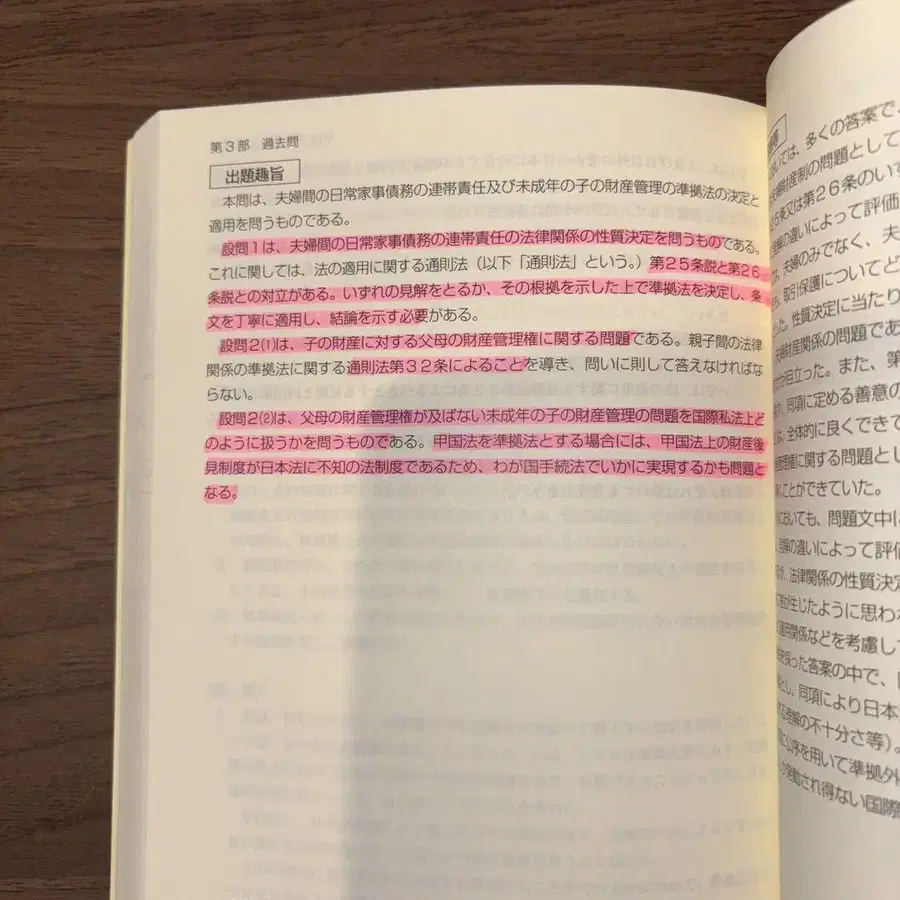 第3部 過去問
出題趣旨
本問は、夫婦間の日常家事債務の連帯責任及び未成年の子の財産管理の準拠法の決定と
適用を問うものである。
設問1は、夫婦間の日常家事債務の連帯責任の法律関係の性質決定を問うものである。
これに関しては、法の適用に関する通則法（以下「通則法」という。）第25条説と第26
条説との対立がある。いずれの見解をとるか、その根拠を示した上で準拠法を決定し、条
文を丁寧に適用し、結論を示す必要がある。
設問2(1)は、子の財産に対する父母の財産管理権に関する問題である。親子間の法律
関係の準拠法に関する通則法第32条によることを導き、問いに則して答えなければな
らない。
設問2(2)は、父母の財産管理権が及ばない未成年の子の財産管理の問題を国際私法上ど
のように扱うかを問うものである。甲国法を準拠法とする場合には、甲国法上の財産後
見制度が日本法に不知の法制度であるため、わが国手続法でいかに実現するかも問題と
なる。
いては、多くの答案で、
夫婦財産制の問題として
25条又は第26条のいず
理解の違いによって評価
は、夫婦のみでなく、夫
も、取引保護についてど
った。性質決定に当たり
夫婦財産関係の問題であ
が目立った。また、第
、同項に定める善意の
は、全体的に良くできて
管理権に関する問題とし
くことができていた。
においても、問題文中に
理解の違いによって評価
、法律関係の性質決定
に差が生じたように思わ
適用関係などを考慮して
を誤った答案の中で、
とし、同項により日本
する理解の不十分さ等）。
に公序を用いて準拠外
発動され得ない国際